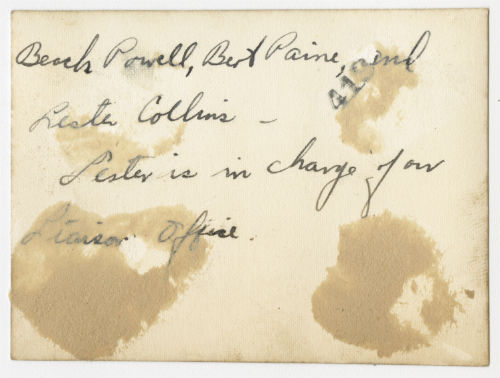 Beach Powell, Bert Paine, and
Lester Collins -
Lester is in charge of our
Liaison Office.